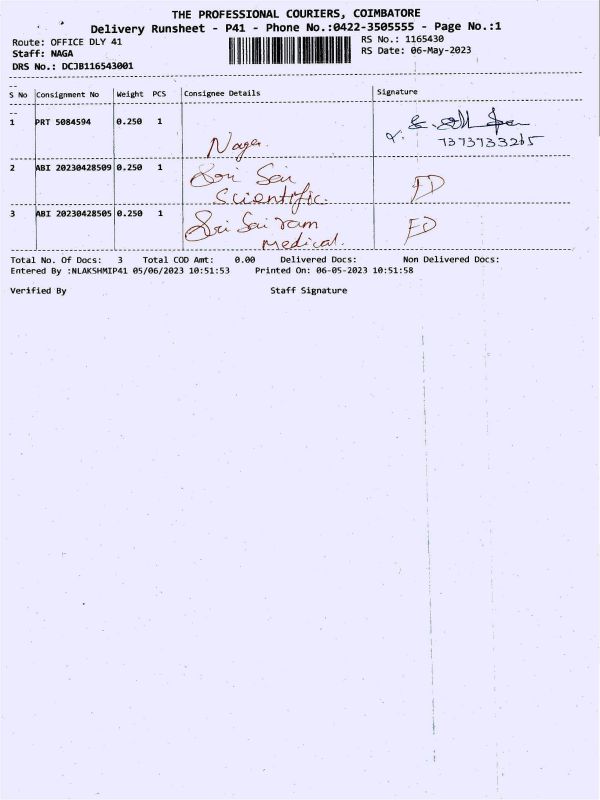 THE PROFESSIONAL COURIERS, COIMBATORE
Delivery Runsheet - P41 - Phone No.:0422-3505555 - Page No.:1
Route: OFFICE DLY 41
RS No.: 1165430
Staff: NAGA
RS Date: 06-May-2023
DRS No.: DCJB116543001
S No Consignment No Weight PCS Consignee Details Signature
1 PRT 5084594 0.250 1 Naga.
7373733265
2 ABI 20230428509 0.250 1 Sri Sai
Scientific. FD
3 ABI 20230428505 0.250 1 Sri Sai ram
medical. FD
Total No. Of Docs: 3 Total COD Amt: 0.00 Delivered Docs: Non Delivered Docs:
Entered By :NLAKSHMIP41 05/06/2023 10:51:53 Printed On: 06-05-2023 10:51:58
Verified By Staff Signature